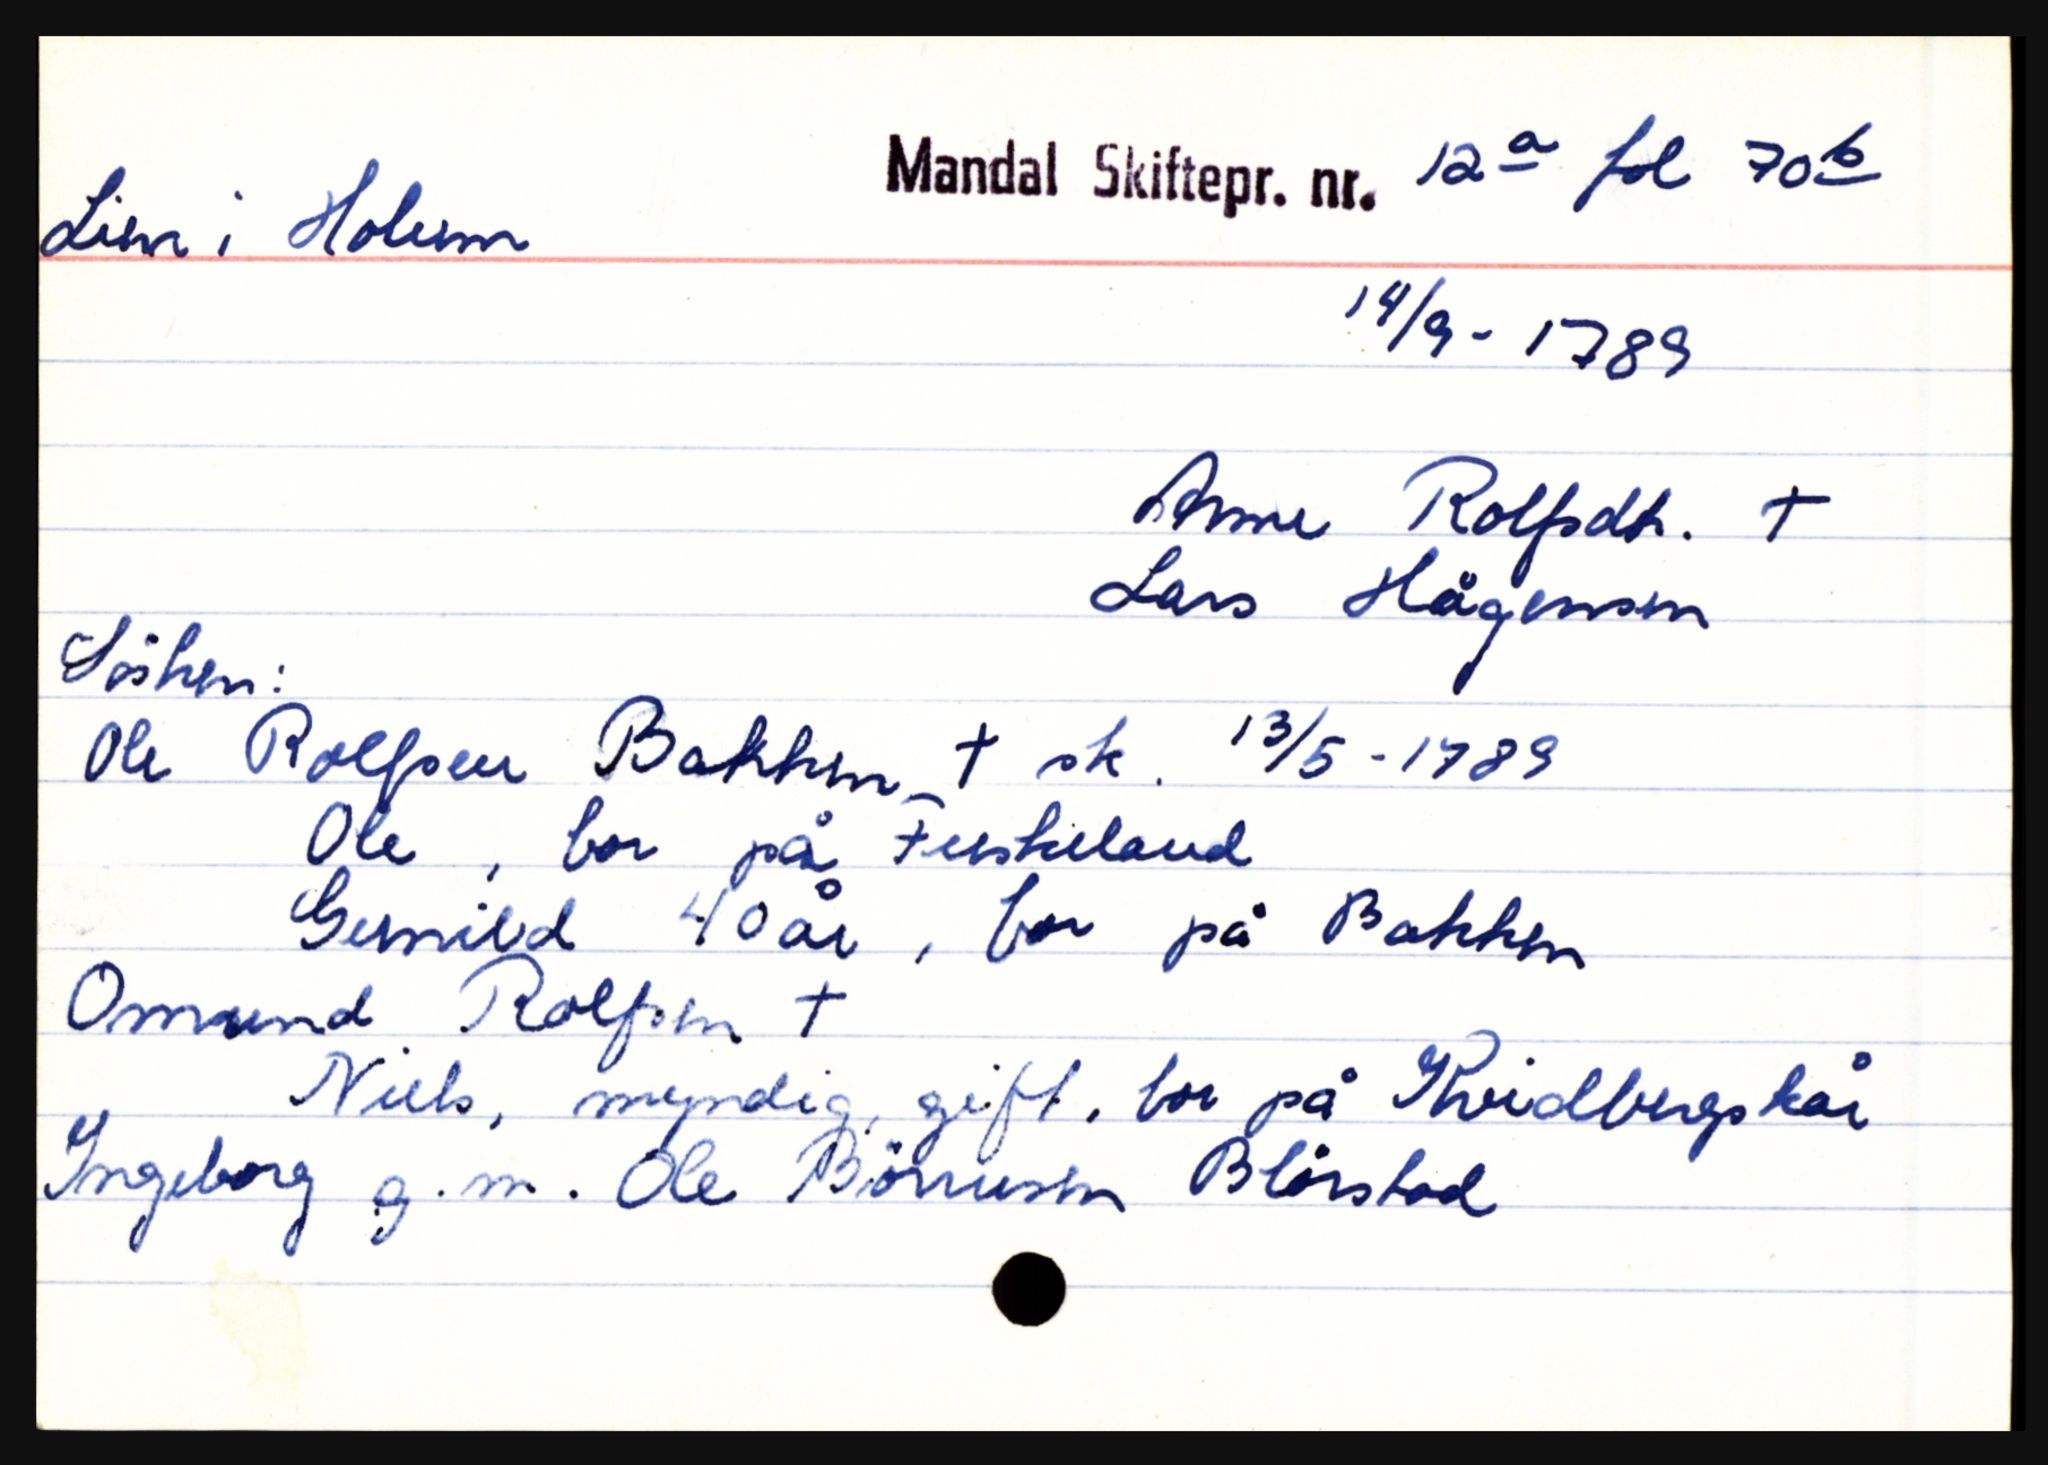 Mandal Skiftepr. nr. 12a fol 70b
Lien i Holum
14/9 - 1789
Anne Rolfsdtr. †
Lars Hågensen
Sösken:
Ole Rolfsen Bakken † sk. 13/5 - 1789
Ole, bor på Fuskeland
Gunnild 40 år, bor på Bakken
Omund Rolfsen †
Niels, myndig, gift, bor på Kvidbergskår
Ingeborg g. m. Ole Börrusen Blörstad